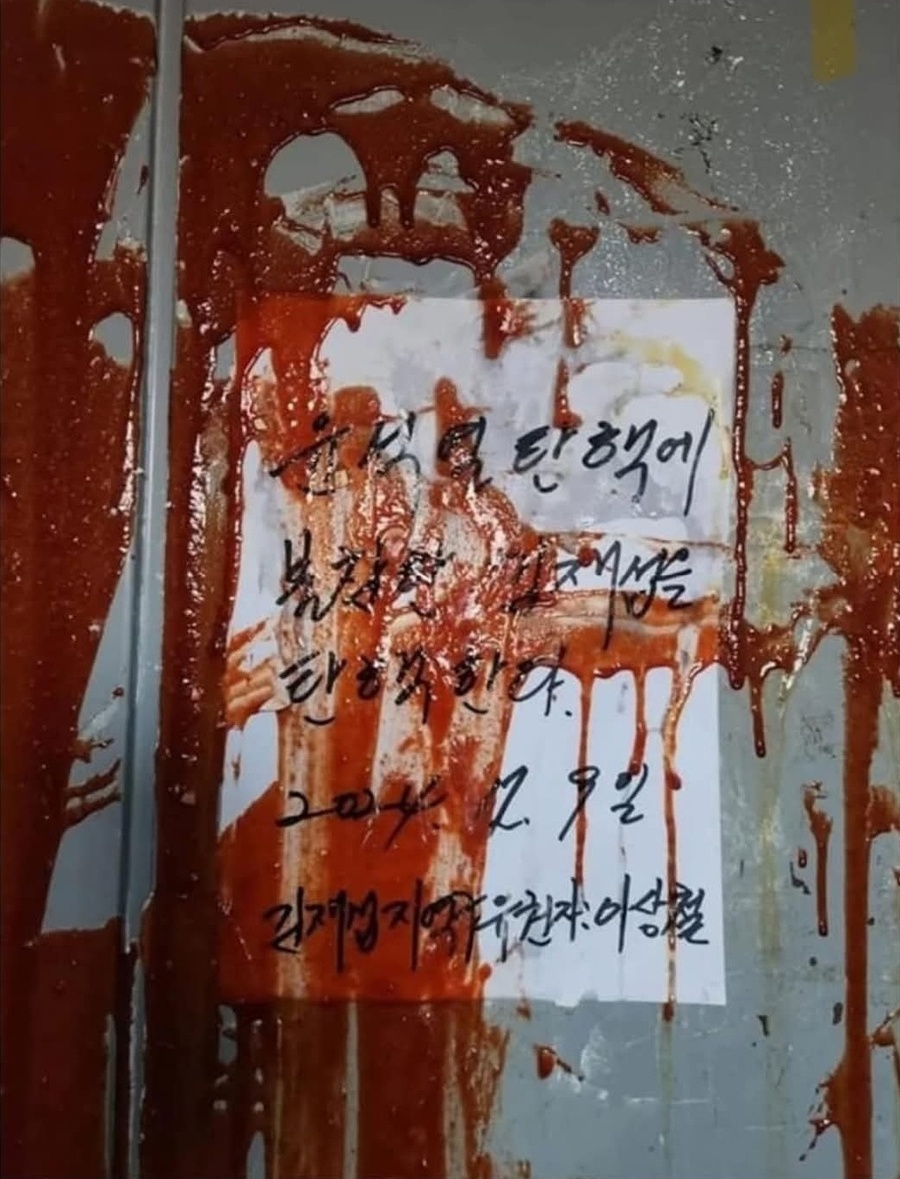 윤석열 탄핵에
불참한 김재섭을
탄핵한다.
2024. 12. 9일
김재섭지역구유권자:이상철